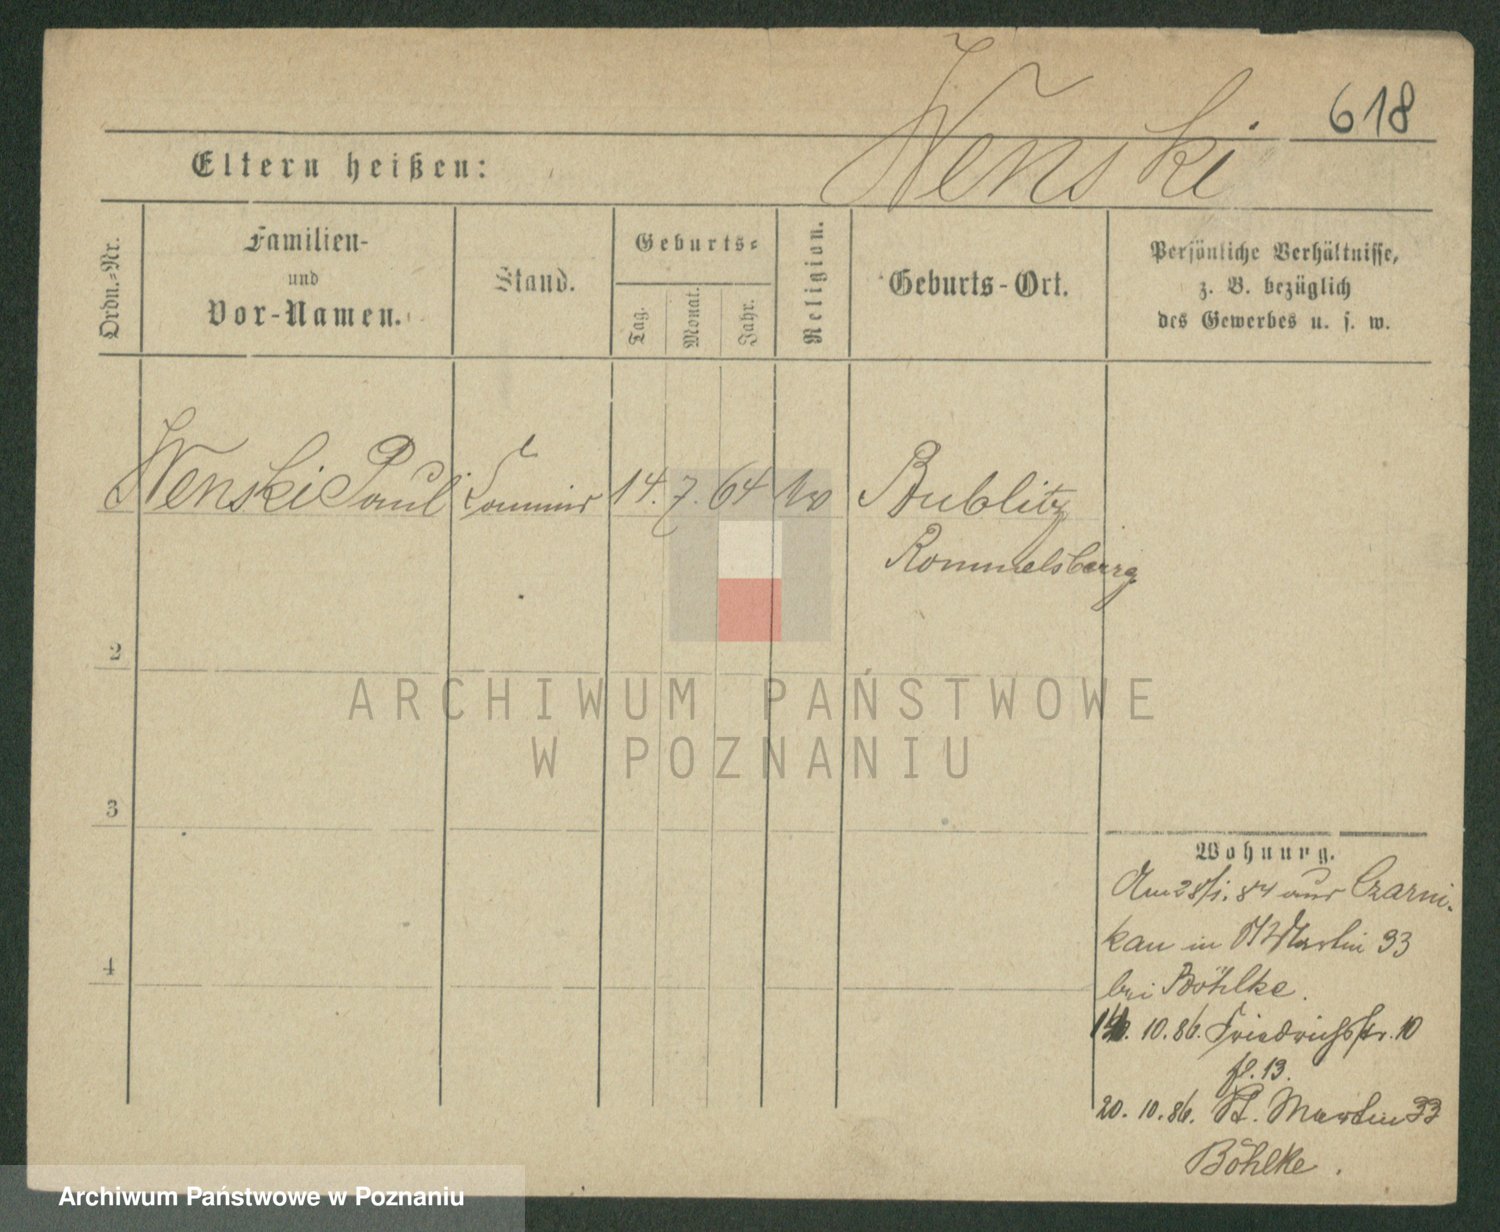 Wenski
618
Eltern heißen:
Ordn.-Nr.
Familien-
und
Vor-Namen.
Stand.
Geburts-
Tag.
Monat.
Jahr.
Religion.
Geburts-Ort.
Persönliche Verhältnisse,
z. B. bezüglich
des Gewerbes u. s. w.
Wenski Paul
Commis
14. 7. 64
Bublitz
Rommelsburg
2
3
4
ARCHIWUM PAŃSTWOWE
W POZNANIU
Wohnung.
Am 28/1. 84 aus Czarni-
kau in St Martin 33
bei Böhlke.
10.86. Friedrichsstr. 10
13.
20. 10. 86. St. Martin 33
Böhlke.
Archiwum Państwowe w Poznaniu